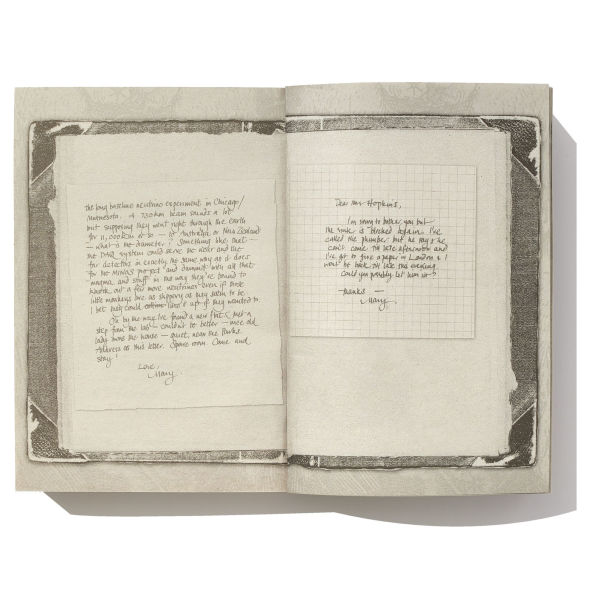 the long baseline neutrino experiment in Chicago/
Minnesota. A 730km beam sounds a lot
but supposing they went right through the earth
for 11,000km or so — to Australia or New Zealand
— what is the diameter? Something like that —
the DAQ system could serve the near and the
far detectors in exactly the same way as it does
for the MINOS project and dammit with all that
magma and stuff in the way they're bound to
knock out a few more neutrinos even if those
little monkeys are as slippery as they seem to be.
I bet they could liven it up if they wanted to.
Oh by the way I've found a new flat & just a
step from the lab — couldn't be better — nice old
lady owns the house — quiet, near the Parks
Address on this letter. Spare room. Come and
stay!
Love,
Mary.
Dear Mrs Hopkins,
I'm sorry to bother you but
the sink is blocked again. I've
called the plumber but he says he
can't come till late afternoon and
I've got to give a paper in London & I
won't be back till late this evening.
Could you possibly let him in?
Thanks —
Mary.